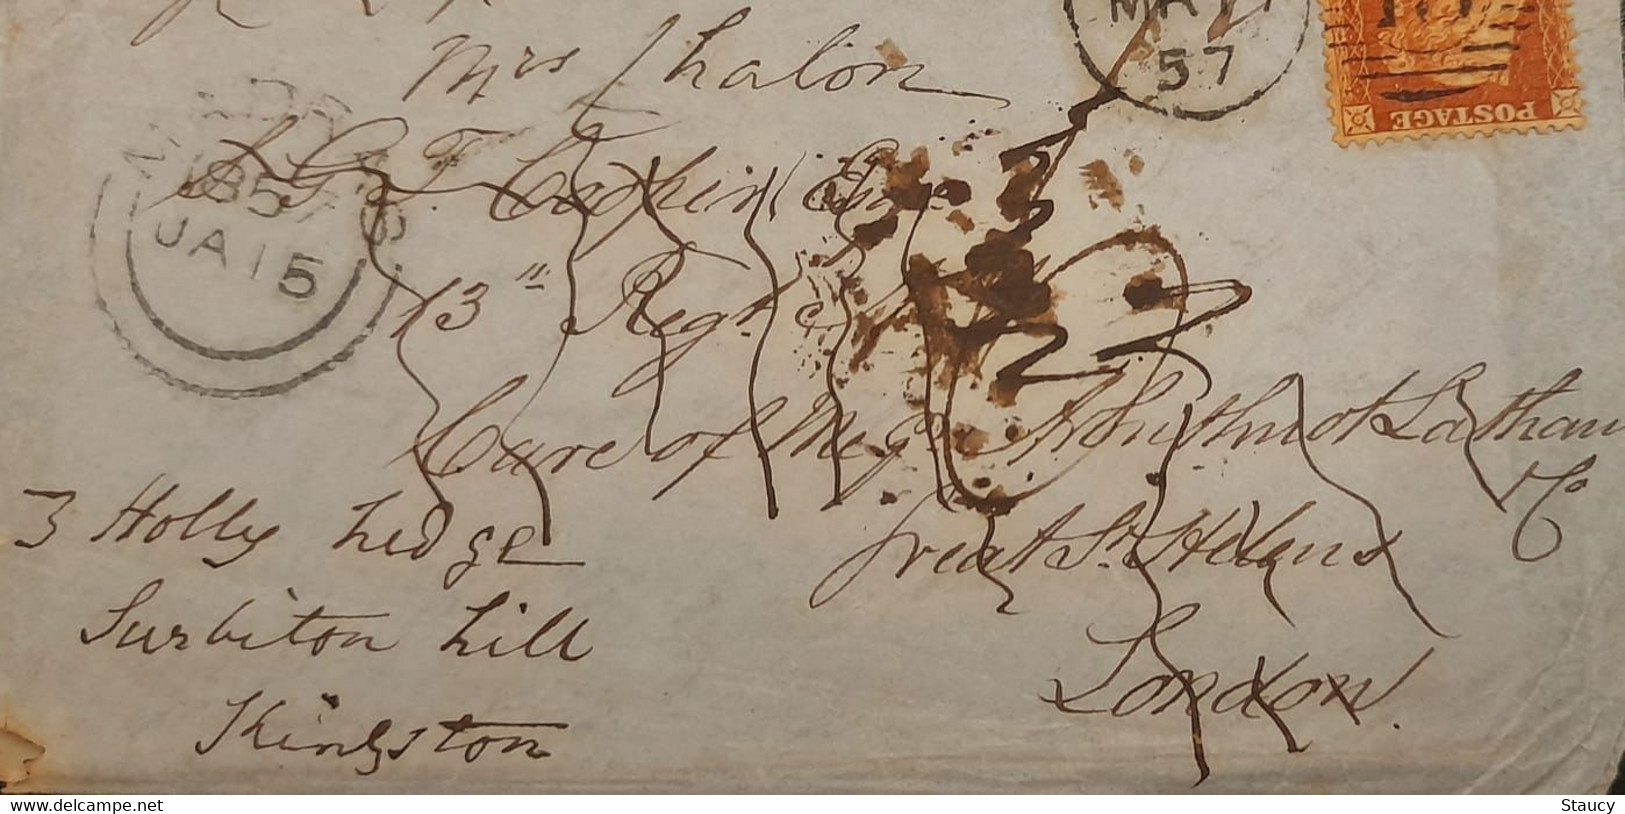 Mrs Chalon
MADRAS
1857
JA 15
MA
57
POSTAGE
13th Regt.
Care of Arbuthnot Latham
& Co
Great St. Helens
London.
3 Holly hedge
Surbiton hill
Kingston
www.delcampe.net
Staucy